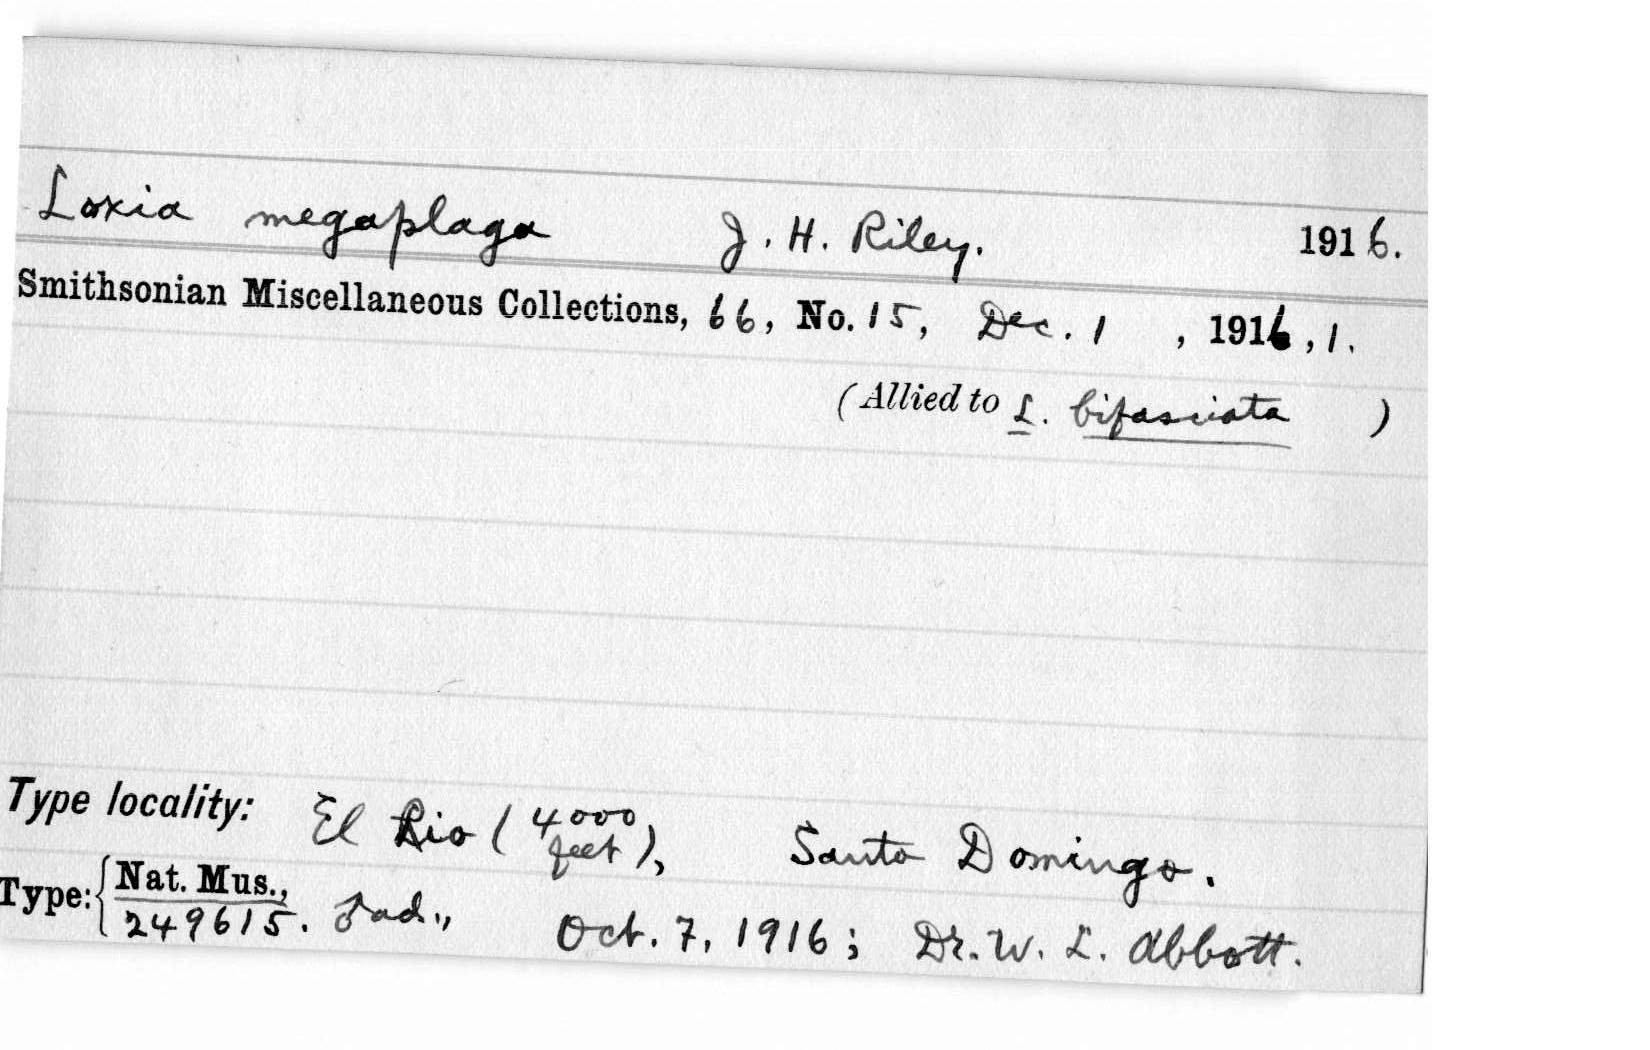 Loxia megaplaga J. H. Riley. 1916.
Smithsonian Miscellaneous Collections, 66, No. 15, Dec. 1 , 1916, 1.
(Allied to L. bifasciata )
Type locality: El Rio (4000 feet), Santo Domingo.
Type: { Nat. Mus., 249615. ♂ ad., Oct. 7, 1916; Dr. W. L. Abbott.